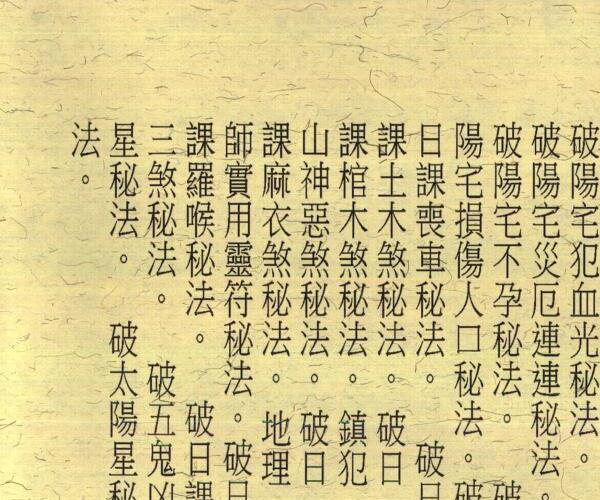 破陽宅犯血光秘法。
破陽宅災厄連連秘法
破陽宅不孕秘法。破
陽宅損傷人口秘法。破
日課喪車秘法。破日
課土木煞秘法。破日
課棺木煞秘法。鎮犯
山神惡煞秘法。破日
課麻衣煞秘法。地理
師實用靈符秘法。破日
課羅喉秘法。破日課
三煞秘法。破五鬼凶
星秘法。破太陽星秘
法。